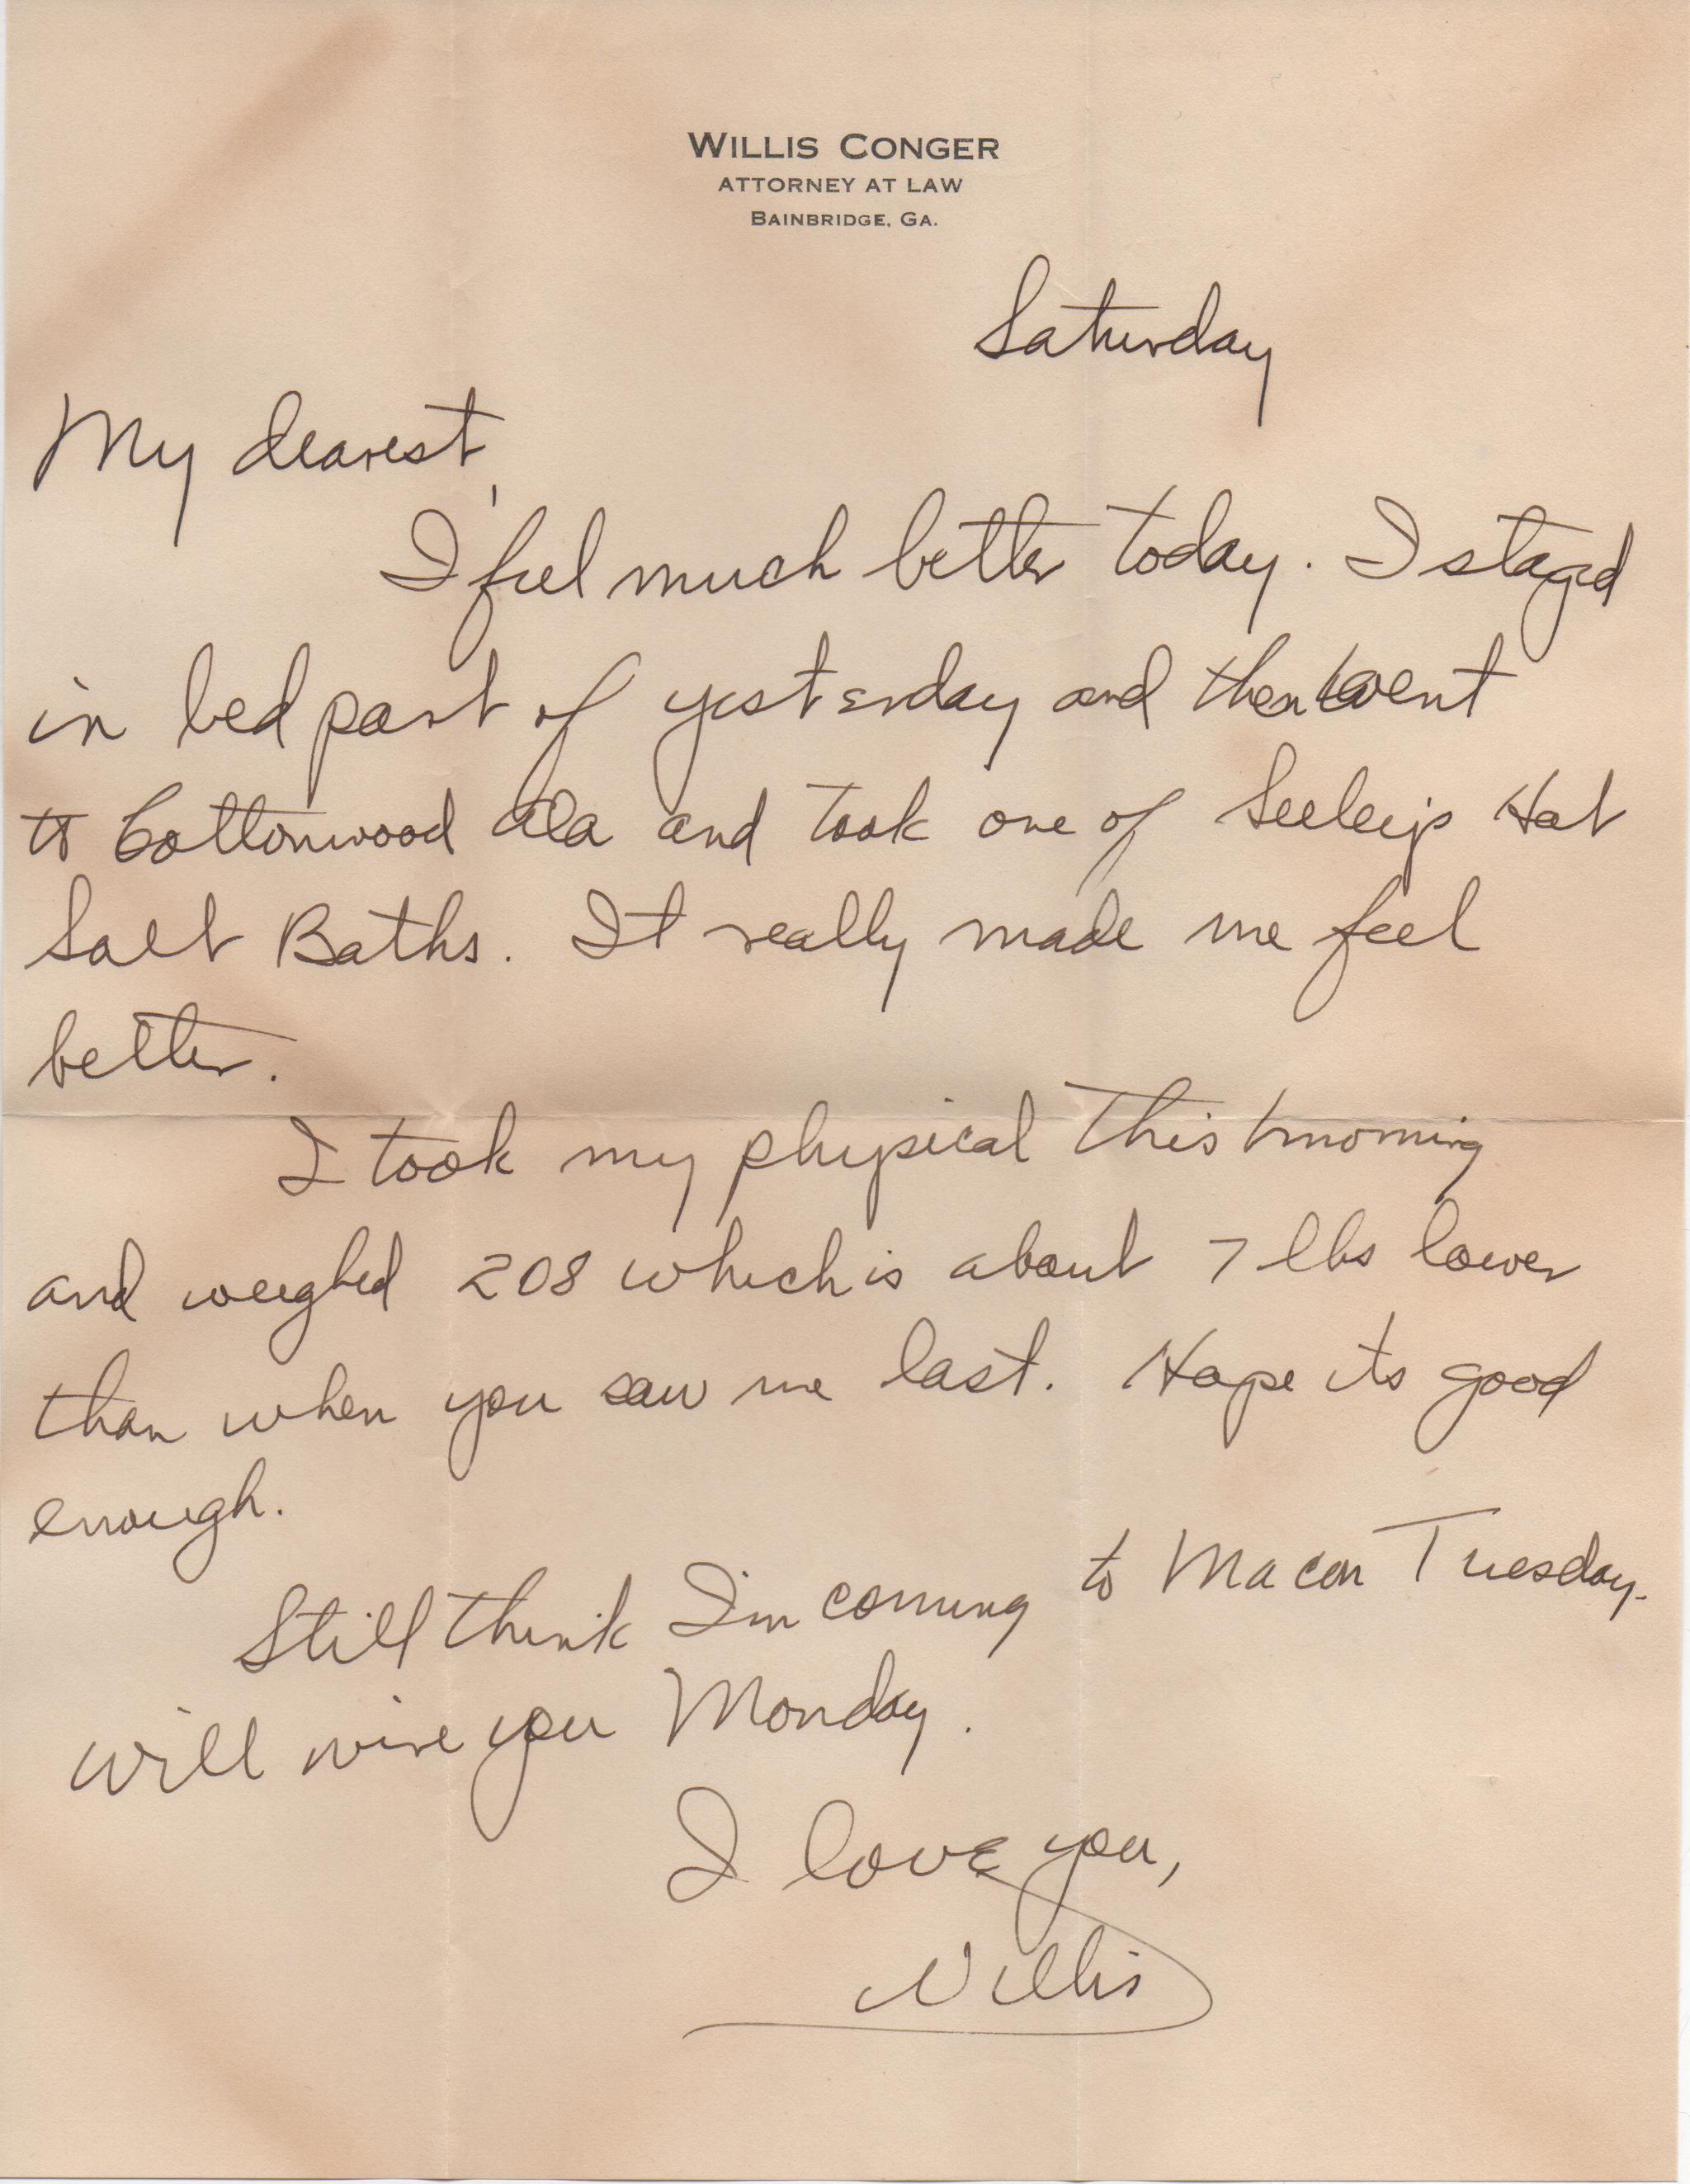 WILLIS CONGER
ATTORNEY AT LAW
BAINBRIDGE, GA.
Saturday
My dearest,
I feel much better today. I stayed
in bed part of yesterday and then went
to Cottonwood Ala and took one of Seeleys Hot
Salt Baths. It really made me feel
better.
I took my physical this morning
and weighed 208 which is about 7 lbs lower
than when you saw me last. Hope its good
enough.
Still think I'm coming to Macon Tuesday.
Will wire you Monday.
I love you,
Willis